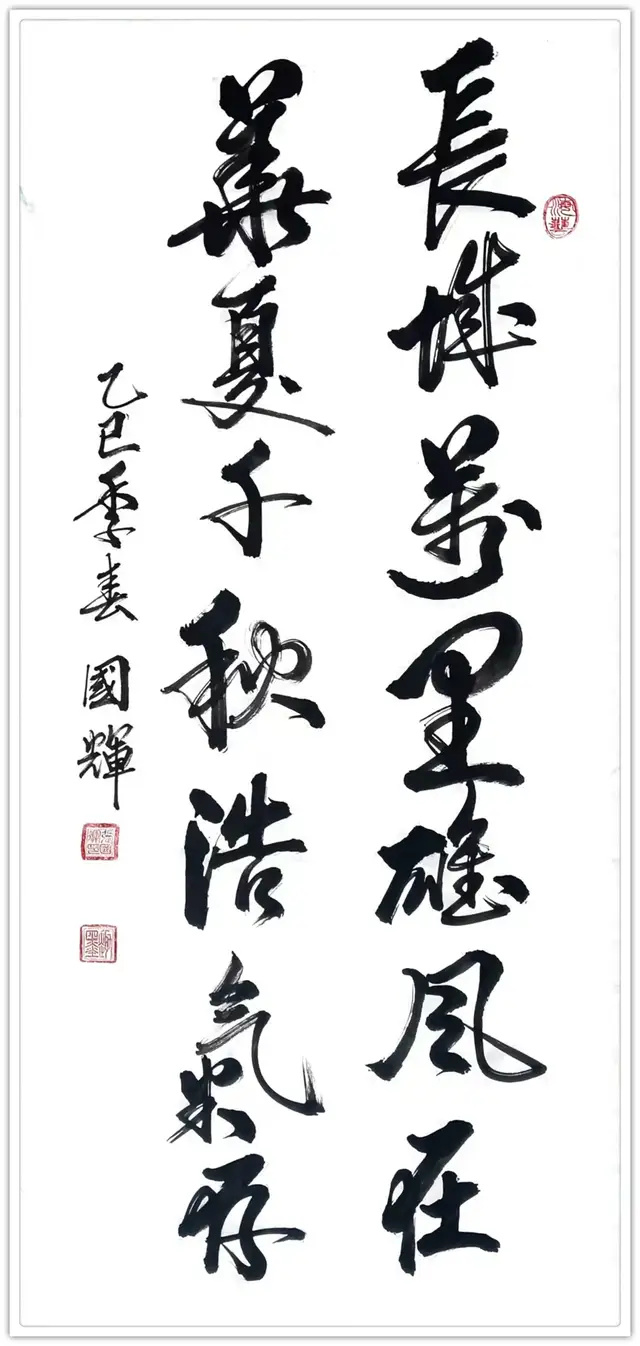 長城萬里雄风在
華夏千秋浩氣存
乙巳季春 國輝